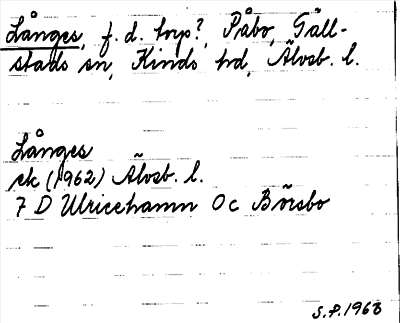 Långes, f. d. torp?, Påbo, Gäll-
stads sn, Kinds hd, Älvsb. l.
Långes
ek (1962) Älvsb. l.
7 D Ulricehamn 0c Börsbo
S.P. 1963